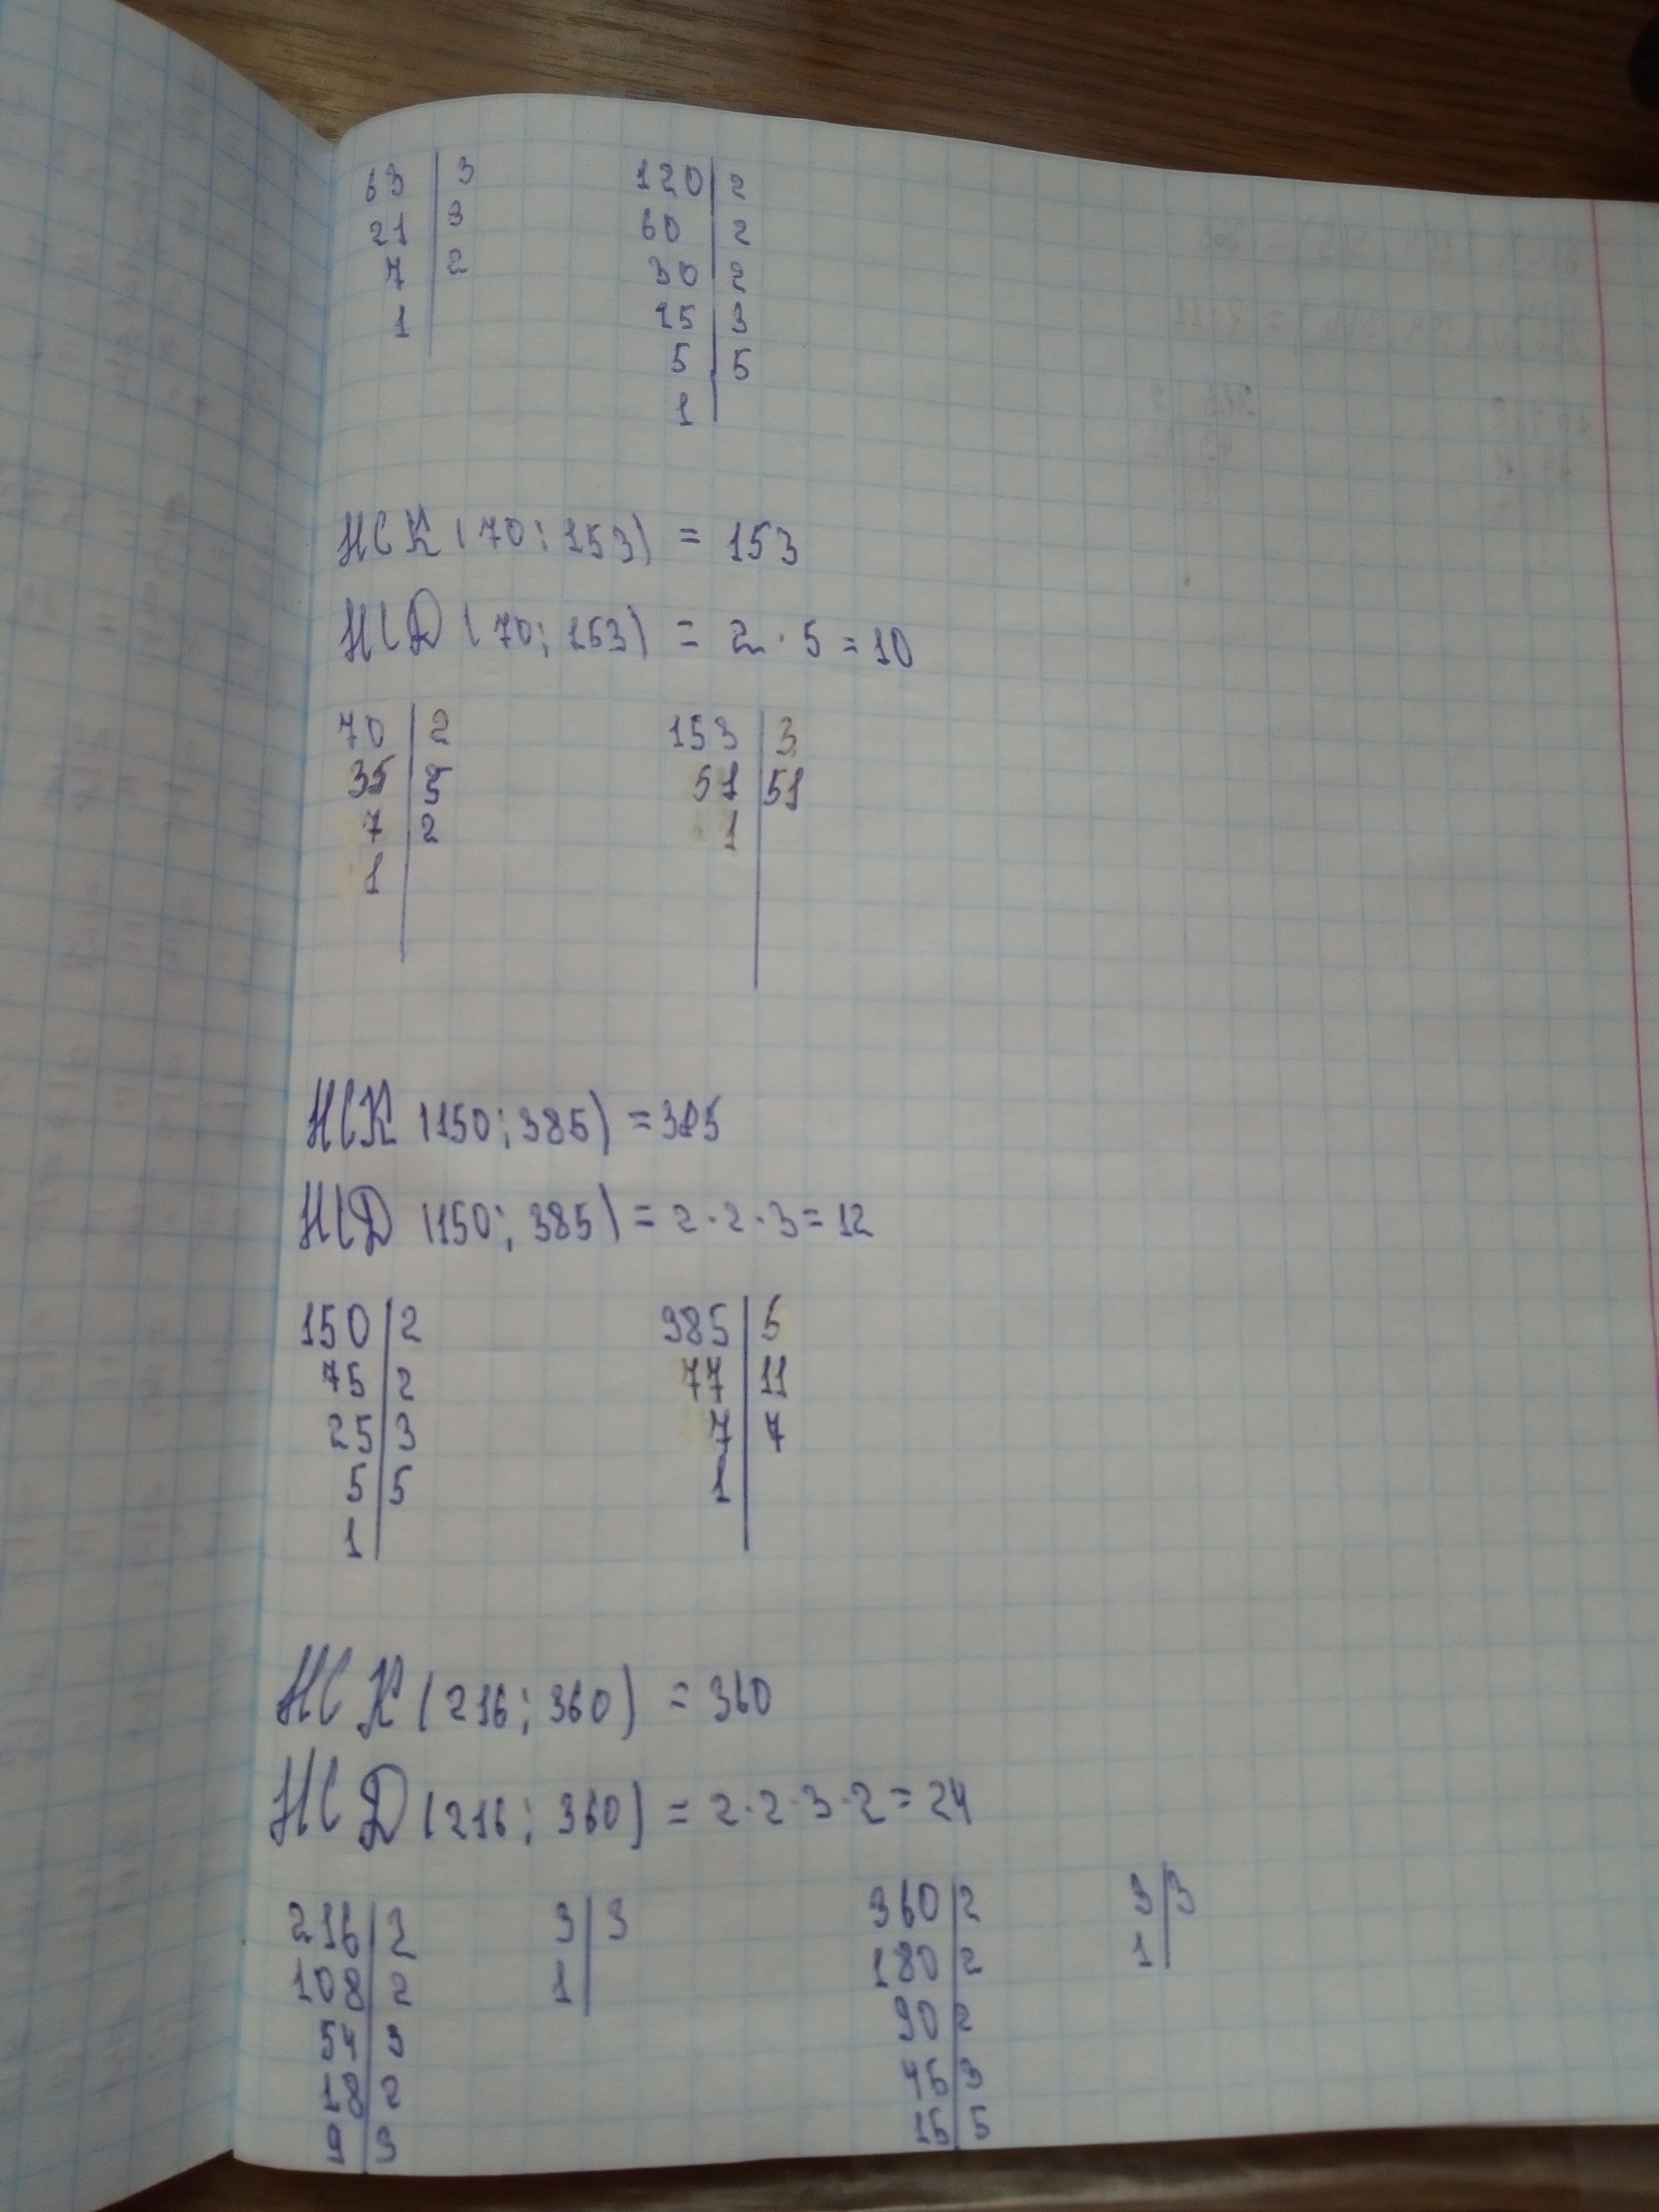 63 | 3 120 | 2
21 | 3 60 | 2
7 | 2 30 | 2
1 25 | 3
5 | 5
1
НСК (70; 153) = 153
НСД (70; 153) = 2 · 5 = 10
70 | 2 153 | 3
35 | 5 51 | 51
7 | 2 1
1
НСК (150; 385) = 385
НСД (150; 385) = 2 · 2 · 3 = 12
150 | 2 385 | 5
75 | 2 77 | 11
25 | 3 7 | 7
5 | 5 1
1
НСК (216; 360) = 360
НСД (216; 360) = 2 · 2 · 3 · 2 = 24
216 | 2 3 | 3 360 | 2 3 | 3
108 | 2 1 180 | 2 1
54 | 3 90 | 2
18 | 2 45 | 3
9 | 3 15 | 5